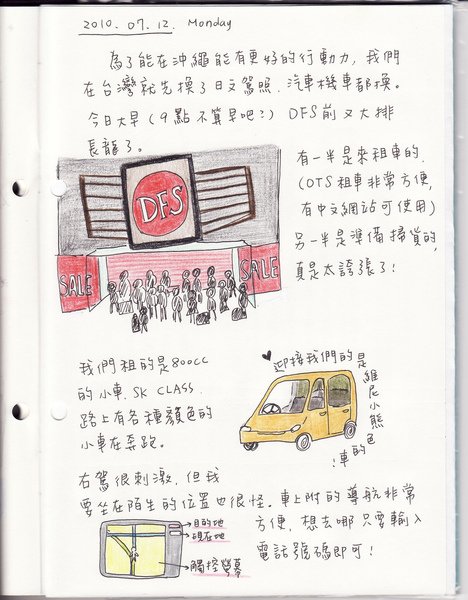 2010. 07. 12. Monday
為了能在沖繩能有更好的行動力, 我們
在台灣就先換了日文駕照. 汽車機車都換。
今日大早 (9點不算早吧?) DFS前又大排
長龍了。
有一半是來租車的.
(OTS租車非常方便.
有中文網站可使用)
另一半是準備掃貨的,
真是太誇張了!
DFS
SALE
SALE
我們租的是800cc
的小車. SK CLASS.
路上有各種顏色的
小車在奔跑。
♥迎接我們的是
維尼小熊色
的車!
右駕很刺激, 但我
要坐在陌生的位置也很怪。車上附的導航非常
方便. 想去哪只要輸入
電話號碼即可!
→目的地
→現在地
→觸控螢幕